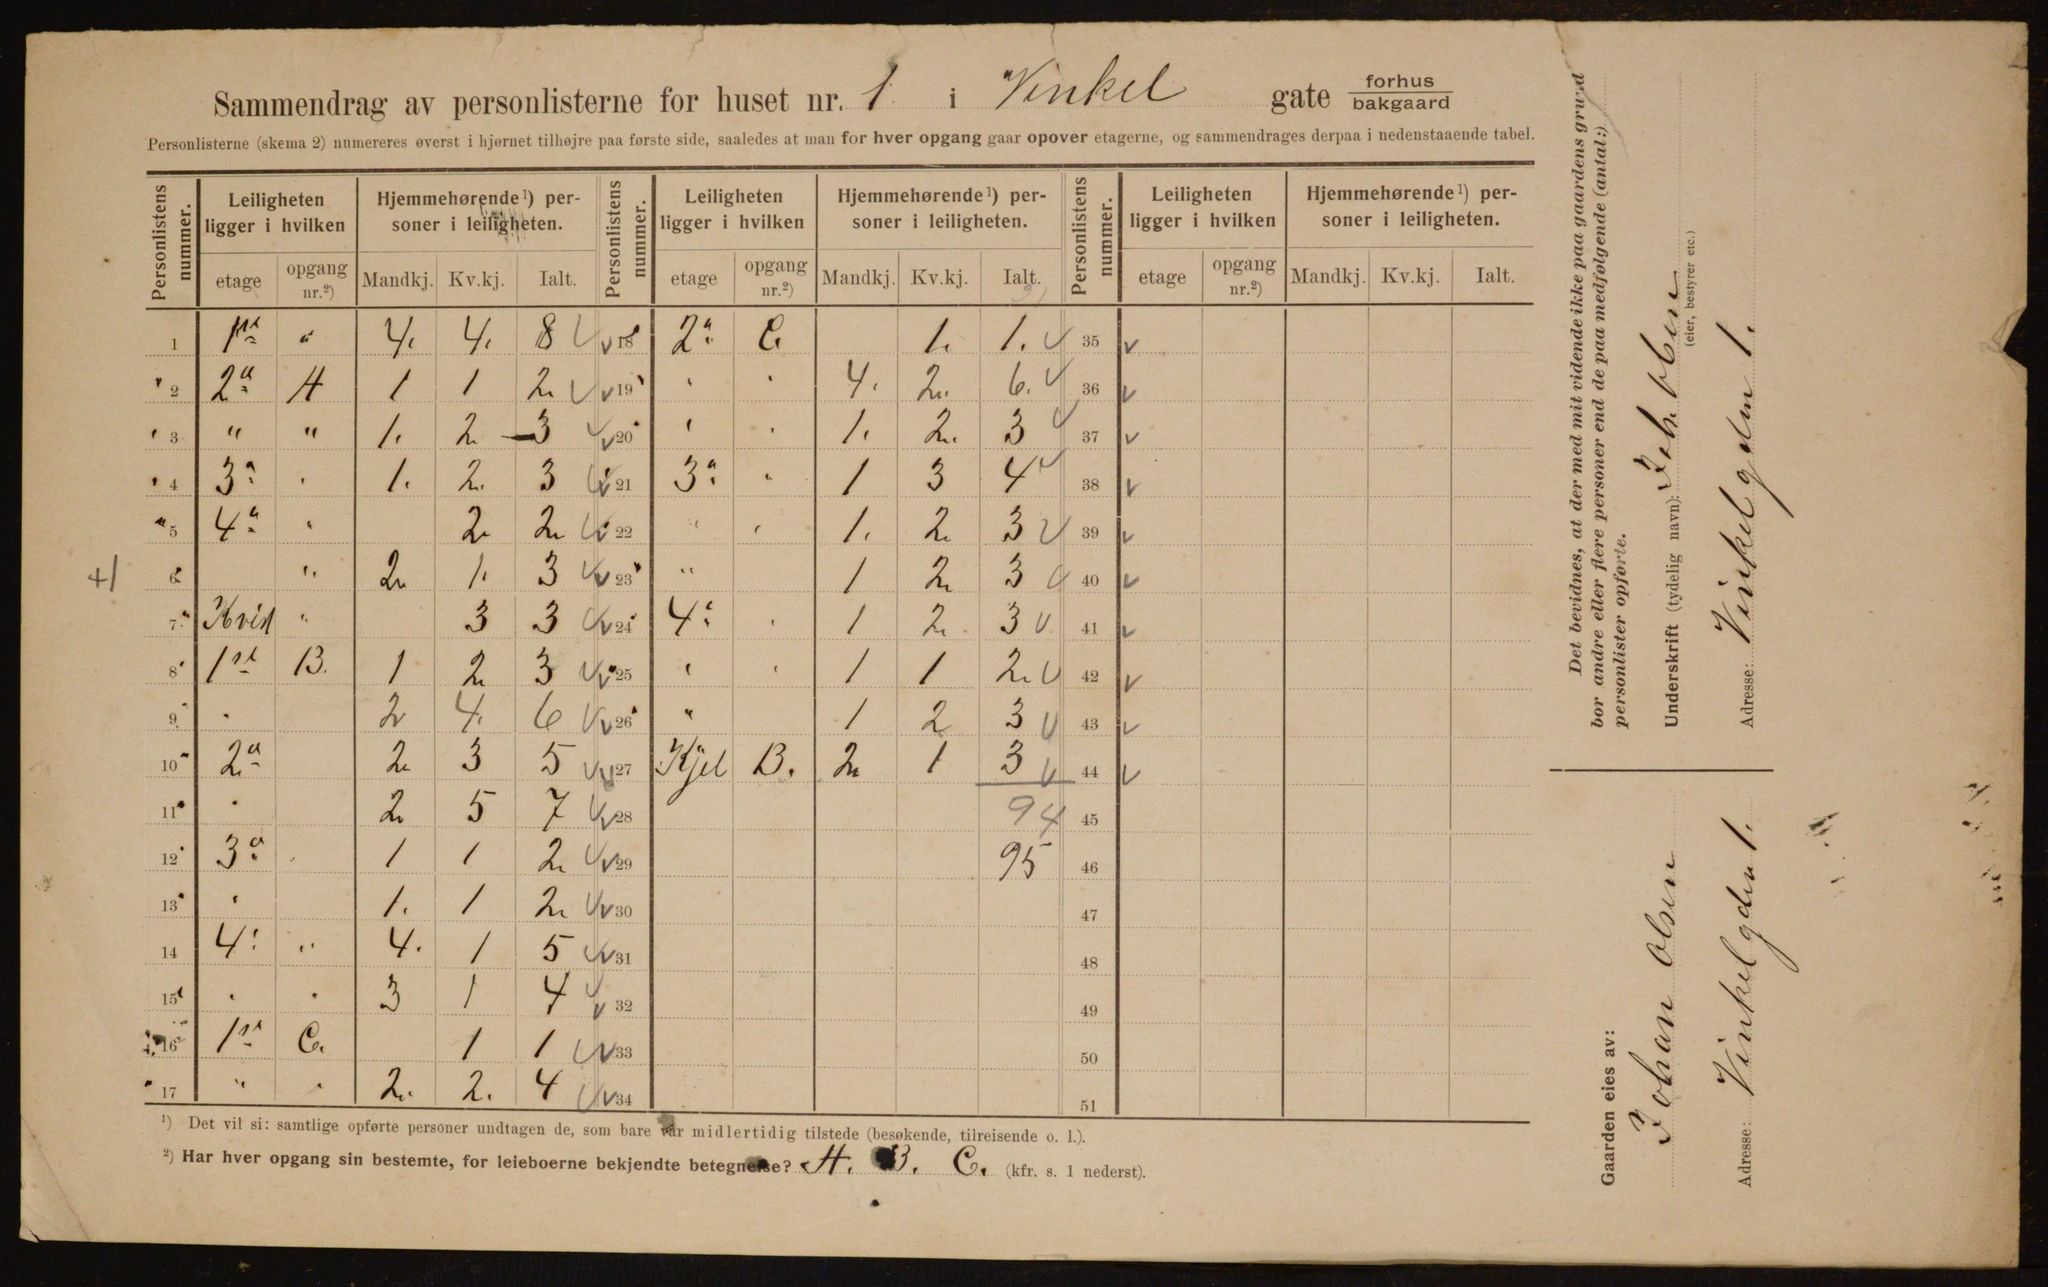 Sammendrag av personlisterne for huset nr. 1 i Vinkel gate forhus bakgaard
Personlisterne (skema 2) numereres øverst i hjørnet tilhøjre paa første side, saaledes at man for hver opgang gaar opover etagerne, og sammendrages derpaa i nedenstaaende tabel.
Personlistens nummer. Leiligheten ligger i hvilken Hjemmehørende¹) personer i leiligheten. Personlistens nummer. Leiligheten ligger i hvilken Hjemmehørende¹) personer i leiligheten. Personlistens nummer. Leiligheten ligger i hvilken Hjemmehørende¹) personer i leiligheten.
etage opgang nr.²) Mandkj. Kv.kj. Ialt. etage opgang nr.²) Mandkj. Kv.kj. Ialt. etage opgang nr.²) Mandkj. Kv.kj. Ialt.
1 1st " 4. 4. 8 18 2" C. 1. 1. 35
2 2" A 1 1 2 19 " " 4. 2. 6. 36
3 " " 1. 2 3 20 " " 1. 2. 3 37
4 3" " 1. 2. 3 21 3" " 1 3 4 38
5 4" " 2 2 22 " " 1. 2 3 39
+1 6 " 2 1. 3 23 " 1 2 3 40
7 Kvist " 3 3 24 4" " 1 2 3 41
8 1st B. 1 2 3 25 " " 1 1 2 42
9 " 2 4. 6 26 " 1 2 3 43
10 2" 2 3 5 27 Kjel B. 2 1 3 44
11 " 2 5 7 28 94 45
12 3" 1 1 2 29 95 46
13 " 1. 1 2 30 47
14 4" " 4. 1 5 31 48
15 " " 3 1 4 32 49
16 1st C. 1 1 33 50
17 " " 2. 2. 4 34 51
¹) Det vil si: samtlige opførte personer undtagen de, som bare var midlertidig tilstede (besøkende, tilreisende o. l.).
²) Har hver opgang sin bestemte, for leieboerne bekjendte betegnelse? A. B. C. (kfr. s. 1 nederst).
Det bevidnes, at der med mit vidende ikke paa gaardens grund
bor andre eller flere personer end de paa medfølgende (antal:)
personlister opførte.
Underskrift (tydelig navn): Joh. Olsen
(eier, bestyrer etc.)
Adresse: Vinkelgaden 1.
Gaarden eies av:
Johan Olsen
Adresse: Vinkelgden 1.